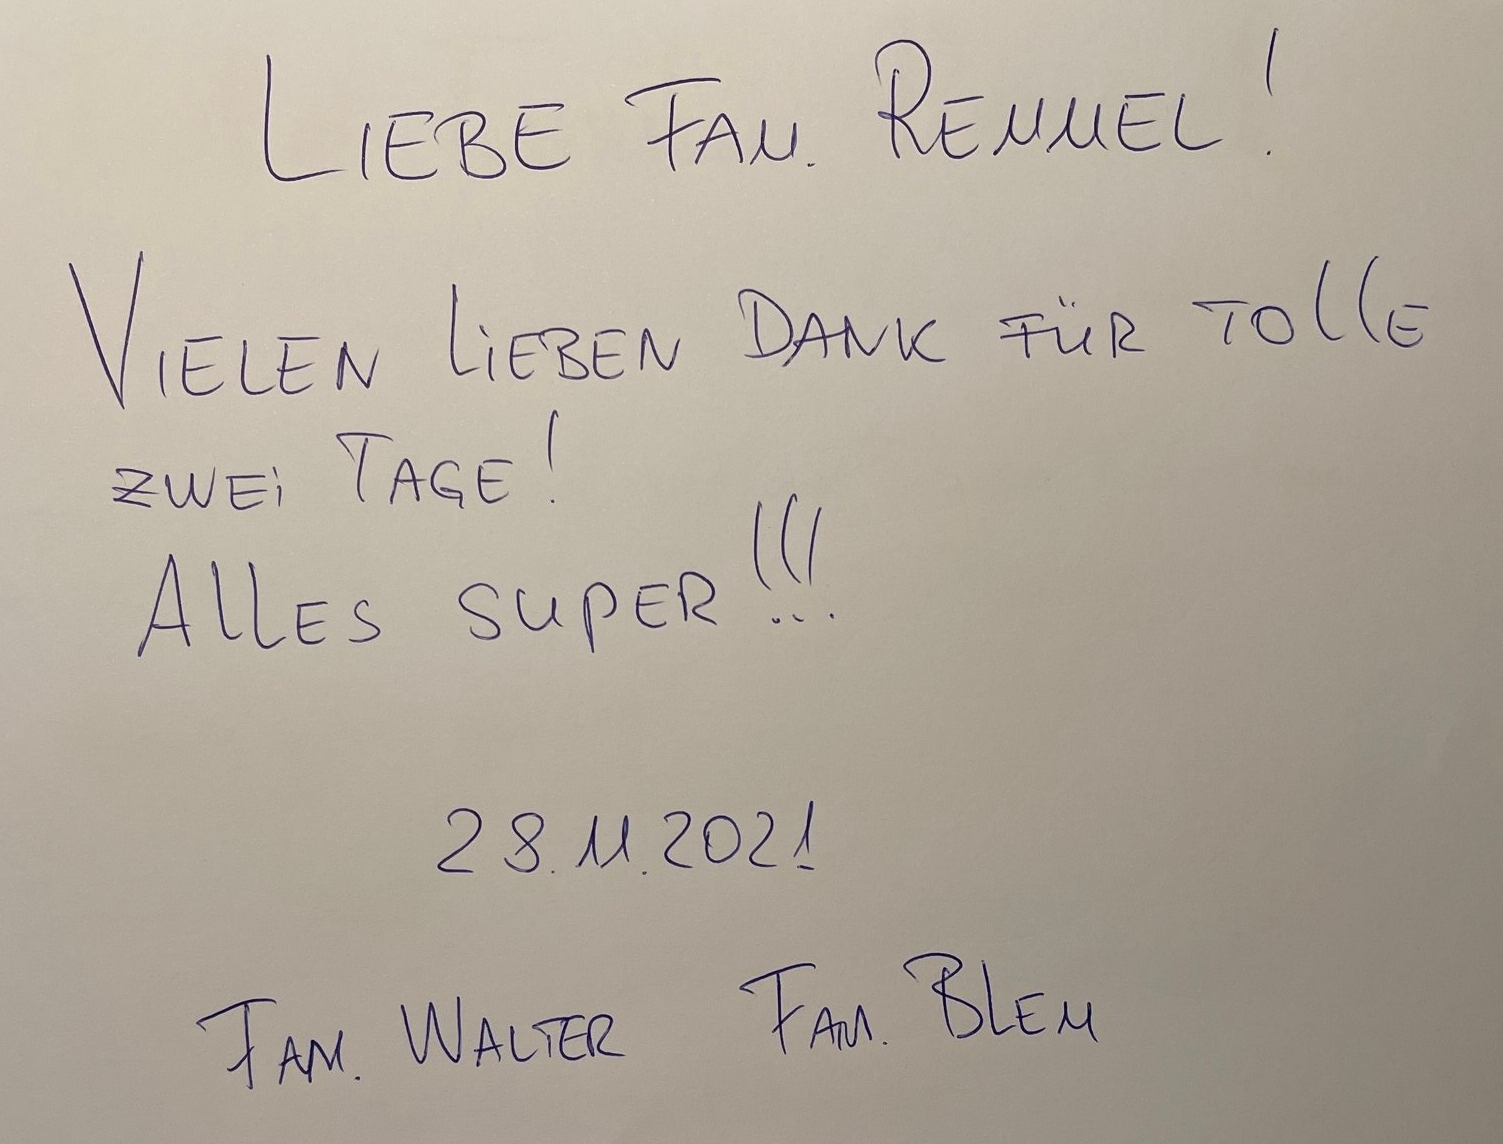 LIEBE FAM. REMMEL!
VIELEN LIEBEN DANK FÜR TOLLE
ZWEI TAGE!
ALLES SUPER!!!
28.11.2021
FAM. WALTER FAM. BLEM